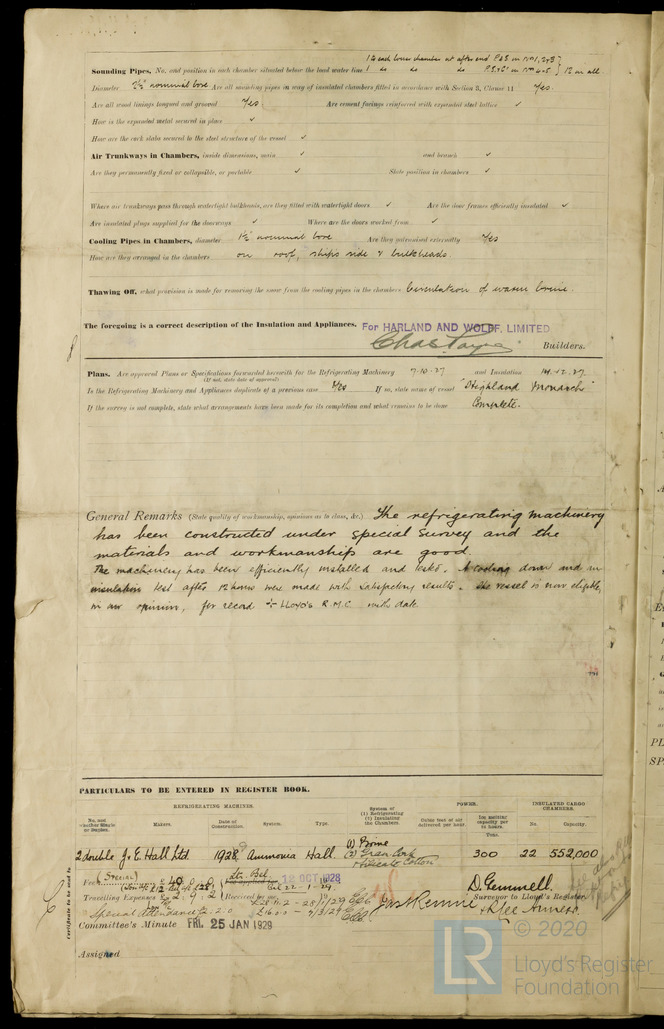 1 to each lower chamber at after end P&S in Nos 1, 2 & 3
Sounding Pipes, No. and position in each chamber situated below the load water line do do do P.S. & C in Nos 4 & 5 } 12 in all.
Diameter 2½" nominal bore Are all sounding pipes in way of insulated chambers fitted in accordance with Section 3, Clause 11 Yes.
Are all wood linings tongued and grooved Yes. Are cement facings reinforced with expanded steel lattice ✓
How is the expanded metal secured in place ✓
How are the cork slabs secured to the steel structure of the vessel ✓
Air Trunkways in Chambers, inside dimensions, main ✓ and branch ✓
Are they permanently fixed or collapsible, or portable ✓ State position in chambers ✓
Where air trunkways pass through watertight bulkheads, are they fitted with watertight doors ✓ Are the door frames efficiently insulated ✓
Are insulated plugs supplied for the doorways ✓ Where are the doors worked from ✓
Cooling Pipes in Chambers, diameter 1½" nominal bore Are they galvanised externally Yes
How are they arranged in the chambers on roof, ships side & bulkheads.
Thawing Off, what provision is made for removing the snow from the cooling pipes in the chambers Circulation of warm brine.
The foregoing is a correct description of the Insulation and Appliances. For HARLAND AND WOLFF. LIMITED
Chas Payne Builders.
Plans. Are approved Plans or Specifications forwarded herewith for the Refrigerating Machinery 7.10.27 and Insulation 14.12.27.
(If not, state date of approval)
Is the Refrigerating Machinery and Appliances duplicate of a previous case Yes If so, state name of vessel "Highland Monarch"
If the survey is not complete, state what arrangements have been made for its completion and what remains to be done Complete.
General Remarks (State quality of workmanship, opinions as to class, &c.) The refrigerating machinery
has been constructed under special survey and the
materials and workmanship are good.
The machinery has been efficiently installed and tested. A cooling down and an
insulation test after 12 hours were made with satisfactory results. The vessel is now eligible,
in our opinion, for record + Lloyd's R.M.C. with date.
PARTICULARS TO BE ENTERED IN REGISTER BOOK.
REFRIGERATING MACHINES. System of (1) Refrigerating (2) Insulating the Chambers. POWER. INSULATED CARGO CHAMBERS.
No. and whether Single or Duplex. Makers. Date of Construction. System. Type. Cubic feet of air delivered per hour. Ice melting capacity per 24 hours. Tons. No. Capacity.
(1) Brine
2 double J. & E. Hall Ltd. 1928 9 Ammonia Hall. (2) Gran Cork 300 22 552,000
+ Silicate Cotton
(Special)
Fee £40 : 0 : 0 12 OCT 1928
Travelling Expenses £ 2 : 9 : 2 Received by me,
Special Attendance 2.2.0
D. Gemmell.
Surveyor to Lloyd's Register.
Jas Rennie
Committee's Minute FRI. 25 JAN 1929
Assigned
Certificate to be sent to
© 2020
LR
Lloyd's Register
Foundation